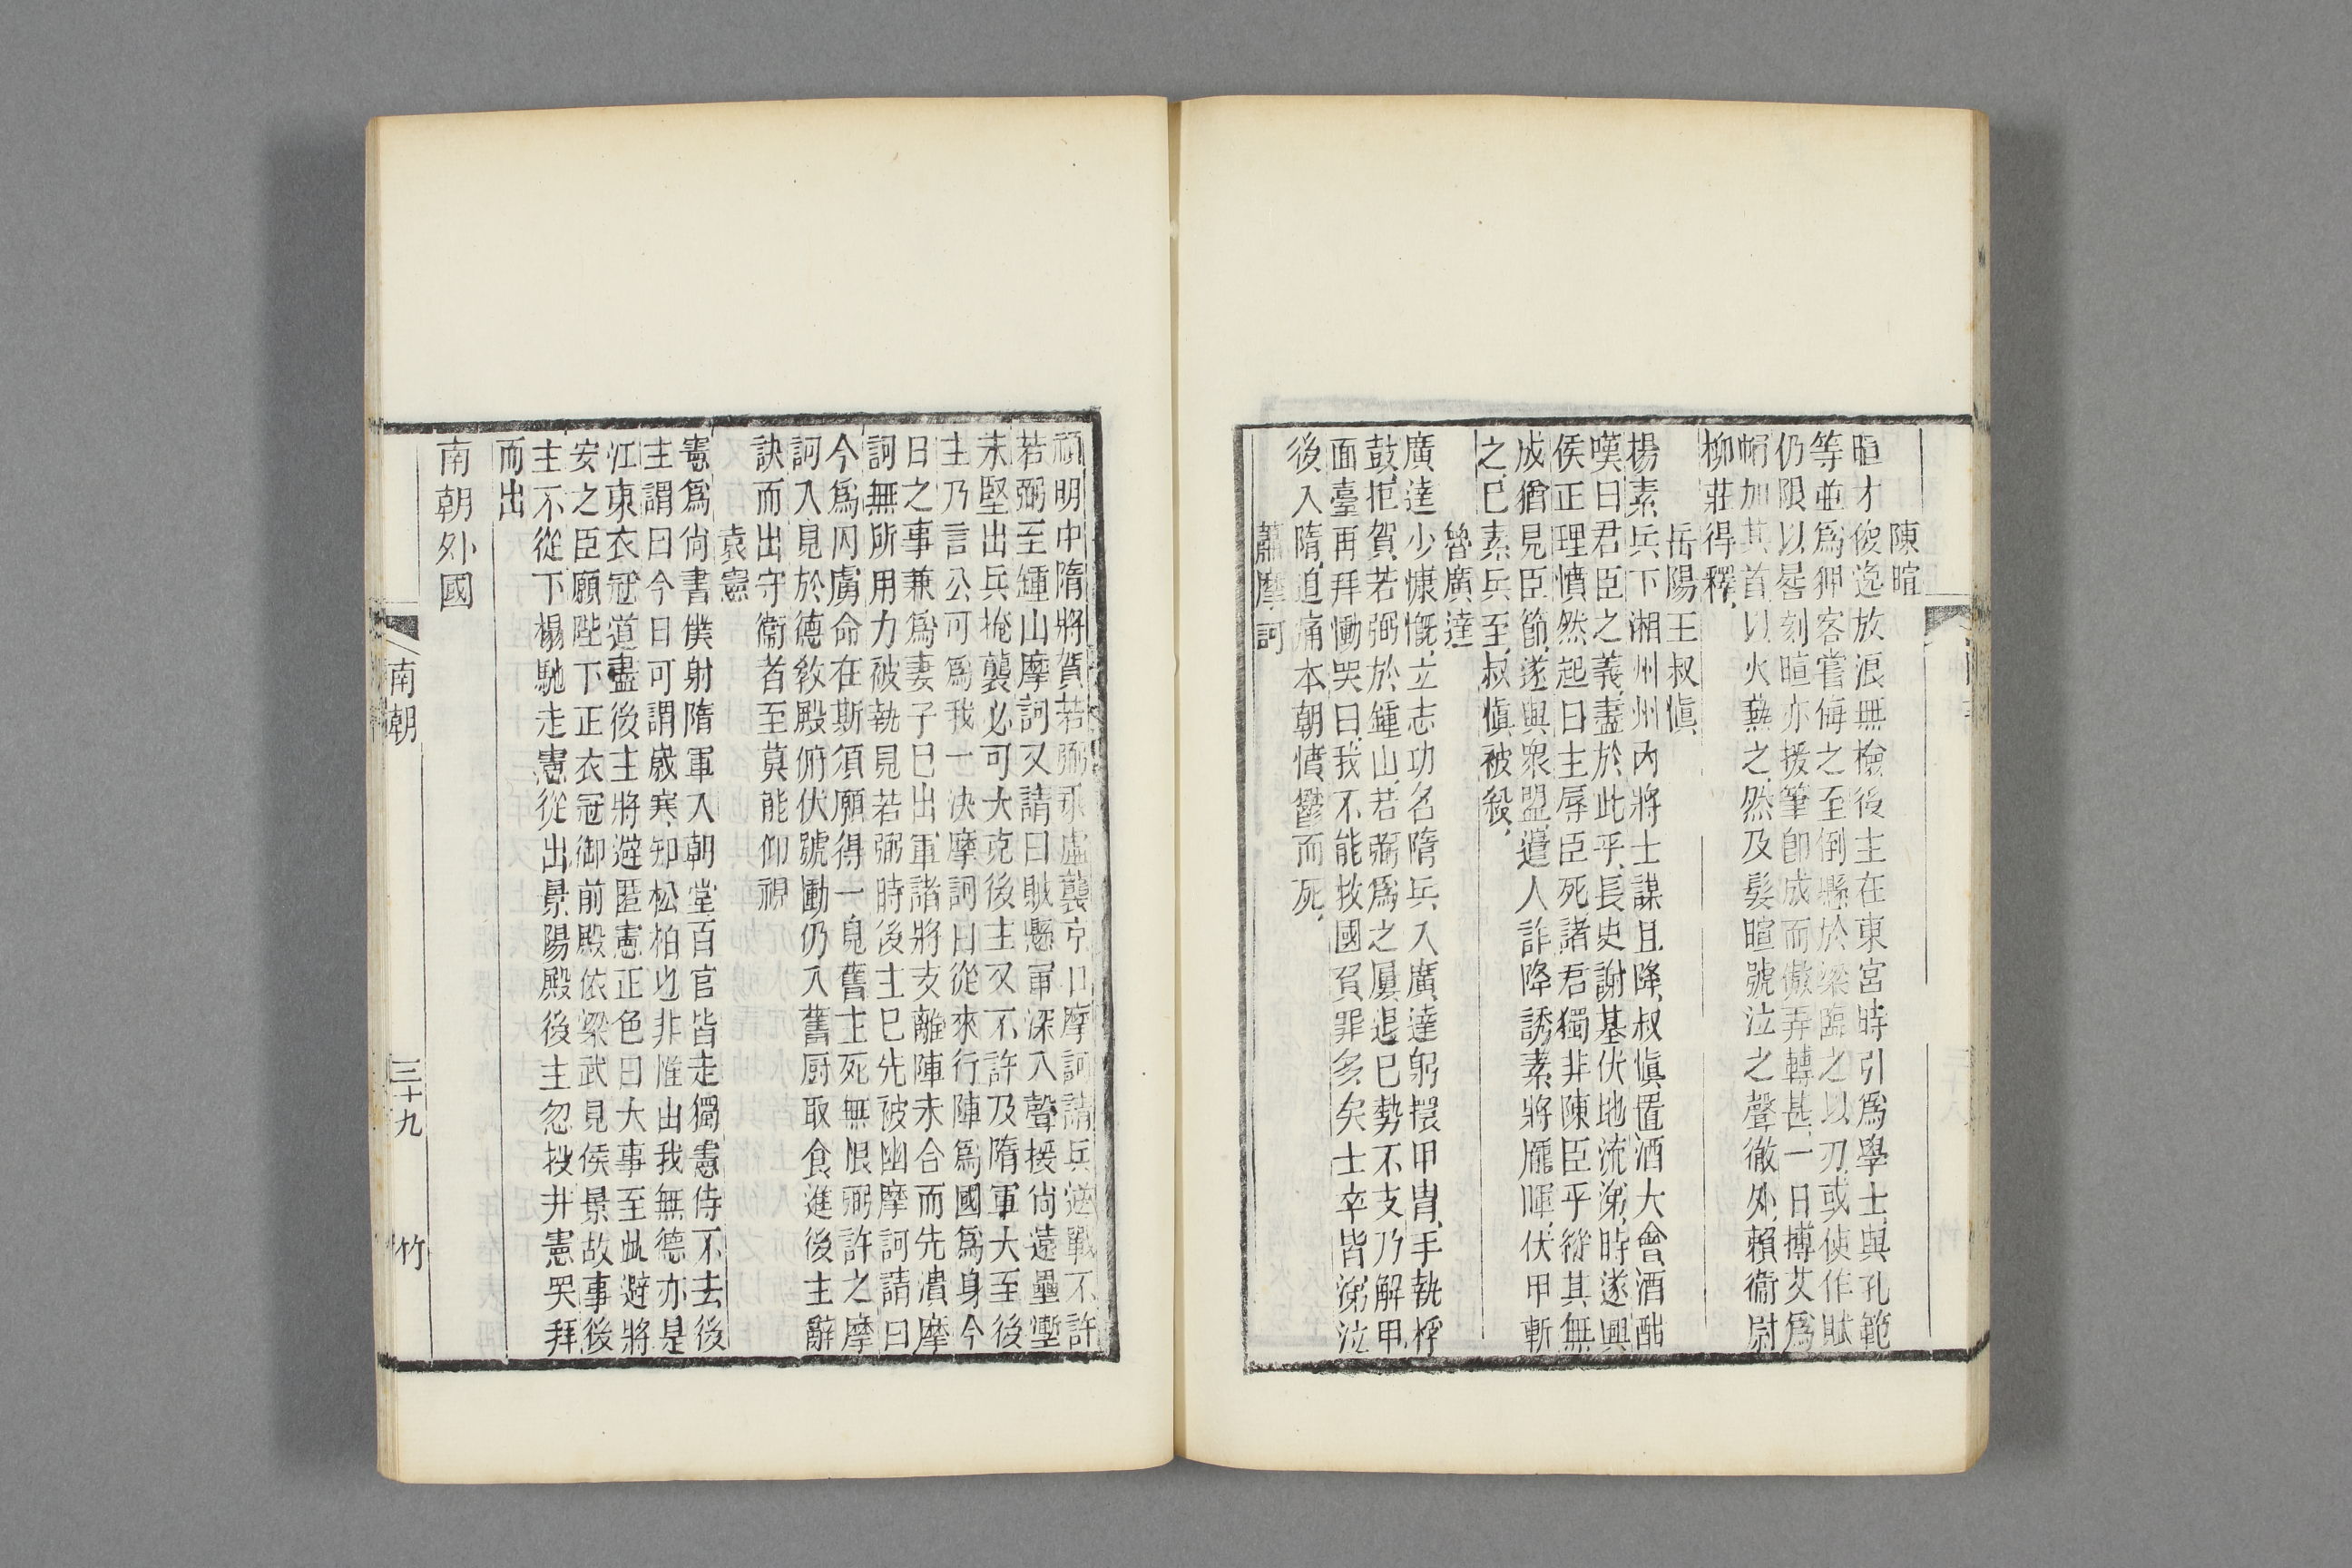 陳暄
暄才俊逸放浪無檢後主在東宮時引爲學士與孔範
等並爲狎客嘗侮之至倒懸於梁臨之以刃或使作賦
仍限以晷刻暄亦援筆卽成而傲弄轉甚一日搏艾爲
帽加其首以火爇之然及髮暄號泣之聲徹外賴衞尉
柳莊得釋
岳陽王叔愼
楊素兵下湘州州內將士謀且降叔愼置酒大會酒酣
嘆曰君臣之義盡於此乎長史謝基伏地流涕時遂興
侯正理憤然起曰主辱臣死諸君獨非陳臣乎縱其無
成猶見臣節遂與衆盟遣人詐降誘素將龎暉伏甲斬
之已素兵至叔愼被殺
魯廣達
廣達少慷慨立志功名隋兵入廣達躬擐甲冑手執桴
鼓拒賀若弼於鍾山若弼爲之屢退已勢不支乃解甲
面臺再拜慟哭曰我不能救國負罪多矣士卒皆涕泣
後入隋追痛本朝憤鬱而死
蕭摩訶
禎明中隋將賀若弼乘虛襲京口摩訶請兵逆戰不許
若弼至鍾山摩訶又請曰賊懸軍深入聲援尙遠壘塹
未堅出兵掩襲必可大克後主又不許及隋軍大至後
主乃言公可爲我一決摩訶曰從來行陣爲國爲身今
日之事兼爲妻子已出軍諸將支離陣未合而先潰摩
訶無所用力被執見若弼時後主已先被幽摩訶請曰
今爲囚虜命在斯須願得一見舊主死無恨弼許之摩
訶入見於德敎殿俯伏號慟仍入舊厨取食進後主辭
訣而出守衞者至莫能仰視
袁憲
憲爲尙書僕射隋軍入朝堂百官皆走獨憲侍不去後
主謂曰今日可謂歲寒知松柏也非惟出我無德亦是
江東衣冠道盡後主將避匿憲正色曰大事至此避將
安之臣願陛下正衣冠御前殿依梁武見侯景故事後
主不從下榻馳走憲從出景陽殿後主忽投井憲哭拜
而出
南朝外國
南朝
三十九
竹